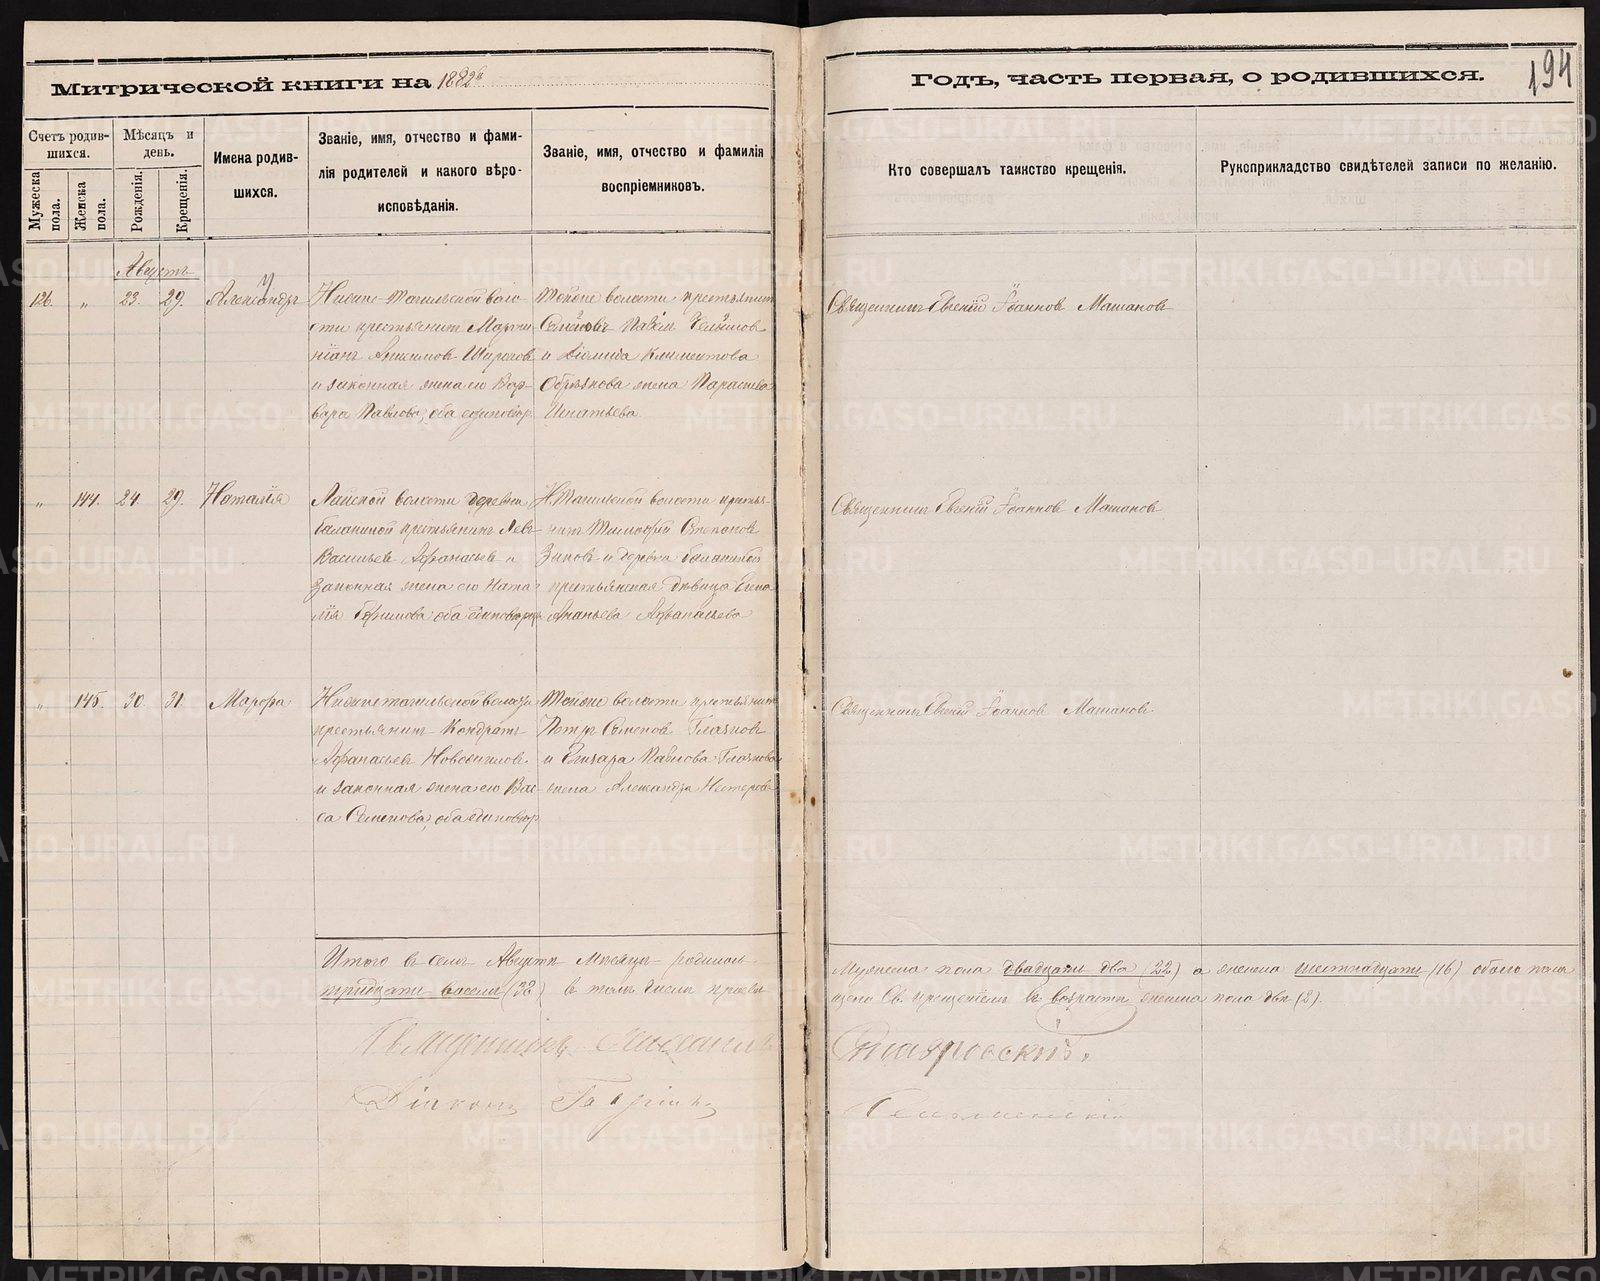 Митрической книги на 1882й
Годъ, часть первая, о родившихся.
194
Счетъ родив-
шихся.
Мужеска пола.
Женска пола.
Мѣсяцъ и
день.
Рожденія.
Крещенія.
Имена родив-
шихся.
Званіе, имя, отчество и фами-
лія родителей и какого вѣро-
исповѣданія.
Званіе, имя, отчество и фамилія
воспріемниковъ.
Кто совершалъ таинство крещенія.
Рукоприкладство свидѣтелей записи по желанію.
Августъ
126. " 23. 29. Александръ
Нижне-Тагильской воло-
сти крестьянинъ Марти-
ніанъ Анисимовъ
и законная жена его Вар-
вара Павлова, оба единовѣр.
Тойже волости крестьянинъ
Павелъ
и Климентова
жена Параскева
Игнатьева
Священникъ Евгеній Іоанновъ Машановъ
" 144. 24. 29. Наталія
Лайской волости деревни
Балакиной крестьянинъ Левъ
Васильевъ Афанасьевъ и
законная жена его Ната-
лія Ефимова, оба единовѣрцы
Н.Тагильской волости кресть-
янинъ Тимофей Степановъ
Зыковъ и деревни Балакиной
крестьянская дѣвица Елена
Ананьева Афанасьева
Священникъ Евгеній Іоанновъ Машановъ
" 145. 30. 31. Марфа
Нижнетагильской волости
крестьянинъ Кондратъ
Афанасьевъ Новосиловъ
и законная жена его Вас-
са Семенова, оба единовѣр.
Тойже волости крестьянинъ
Петръ Семеновъ Глазковъ
и Елизара Павлова Глазкова
жена Александра Нестерова
Священникъ Евгеній Іоанновъ Машановъ
Итого въ семъ Августѣ Мѣсяцѣ родилось
тридцать восемь (38) въ томъ числѣ просвѣ-
Мужеска пола двадцать два (22) а женска шестнадцать (16) обоего пола
щено Св. крещеніемъ въ возрастѣ женска пола двѣ (2).
Діаконъ Гавріилъ
METRIKI.GASO-URAL.RU